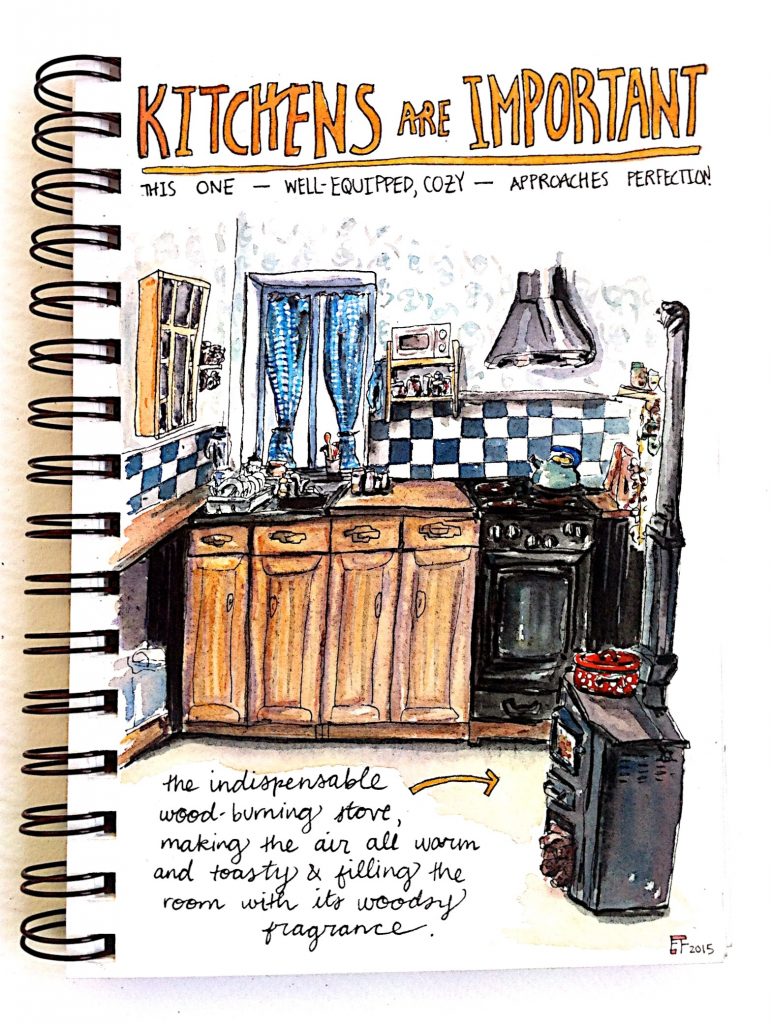 KITCHENS ARE IMPORTANT
THIS ONE — WELL-EQUIPPED, COZY — APPROACHES PERFECTION!
the indispensable
wood-burning stove,
making the air all warm
and toasty & filling the
room with its woodsy
fragrance.
EF 2015